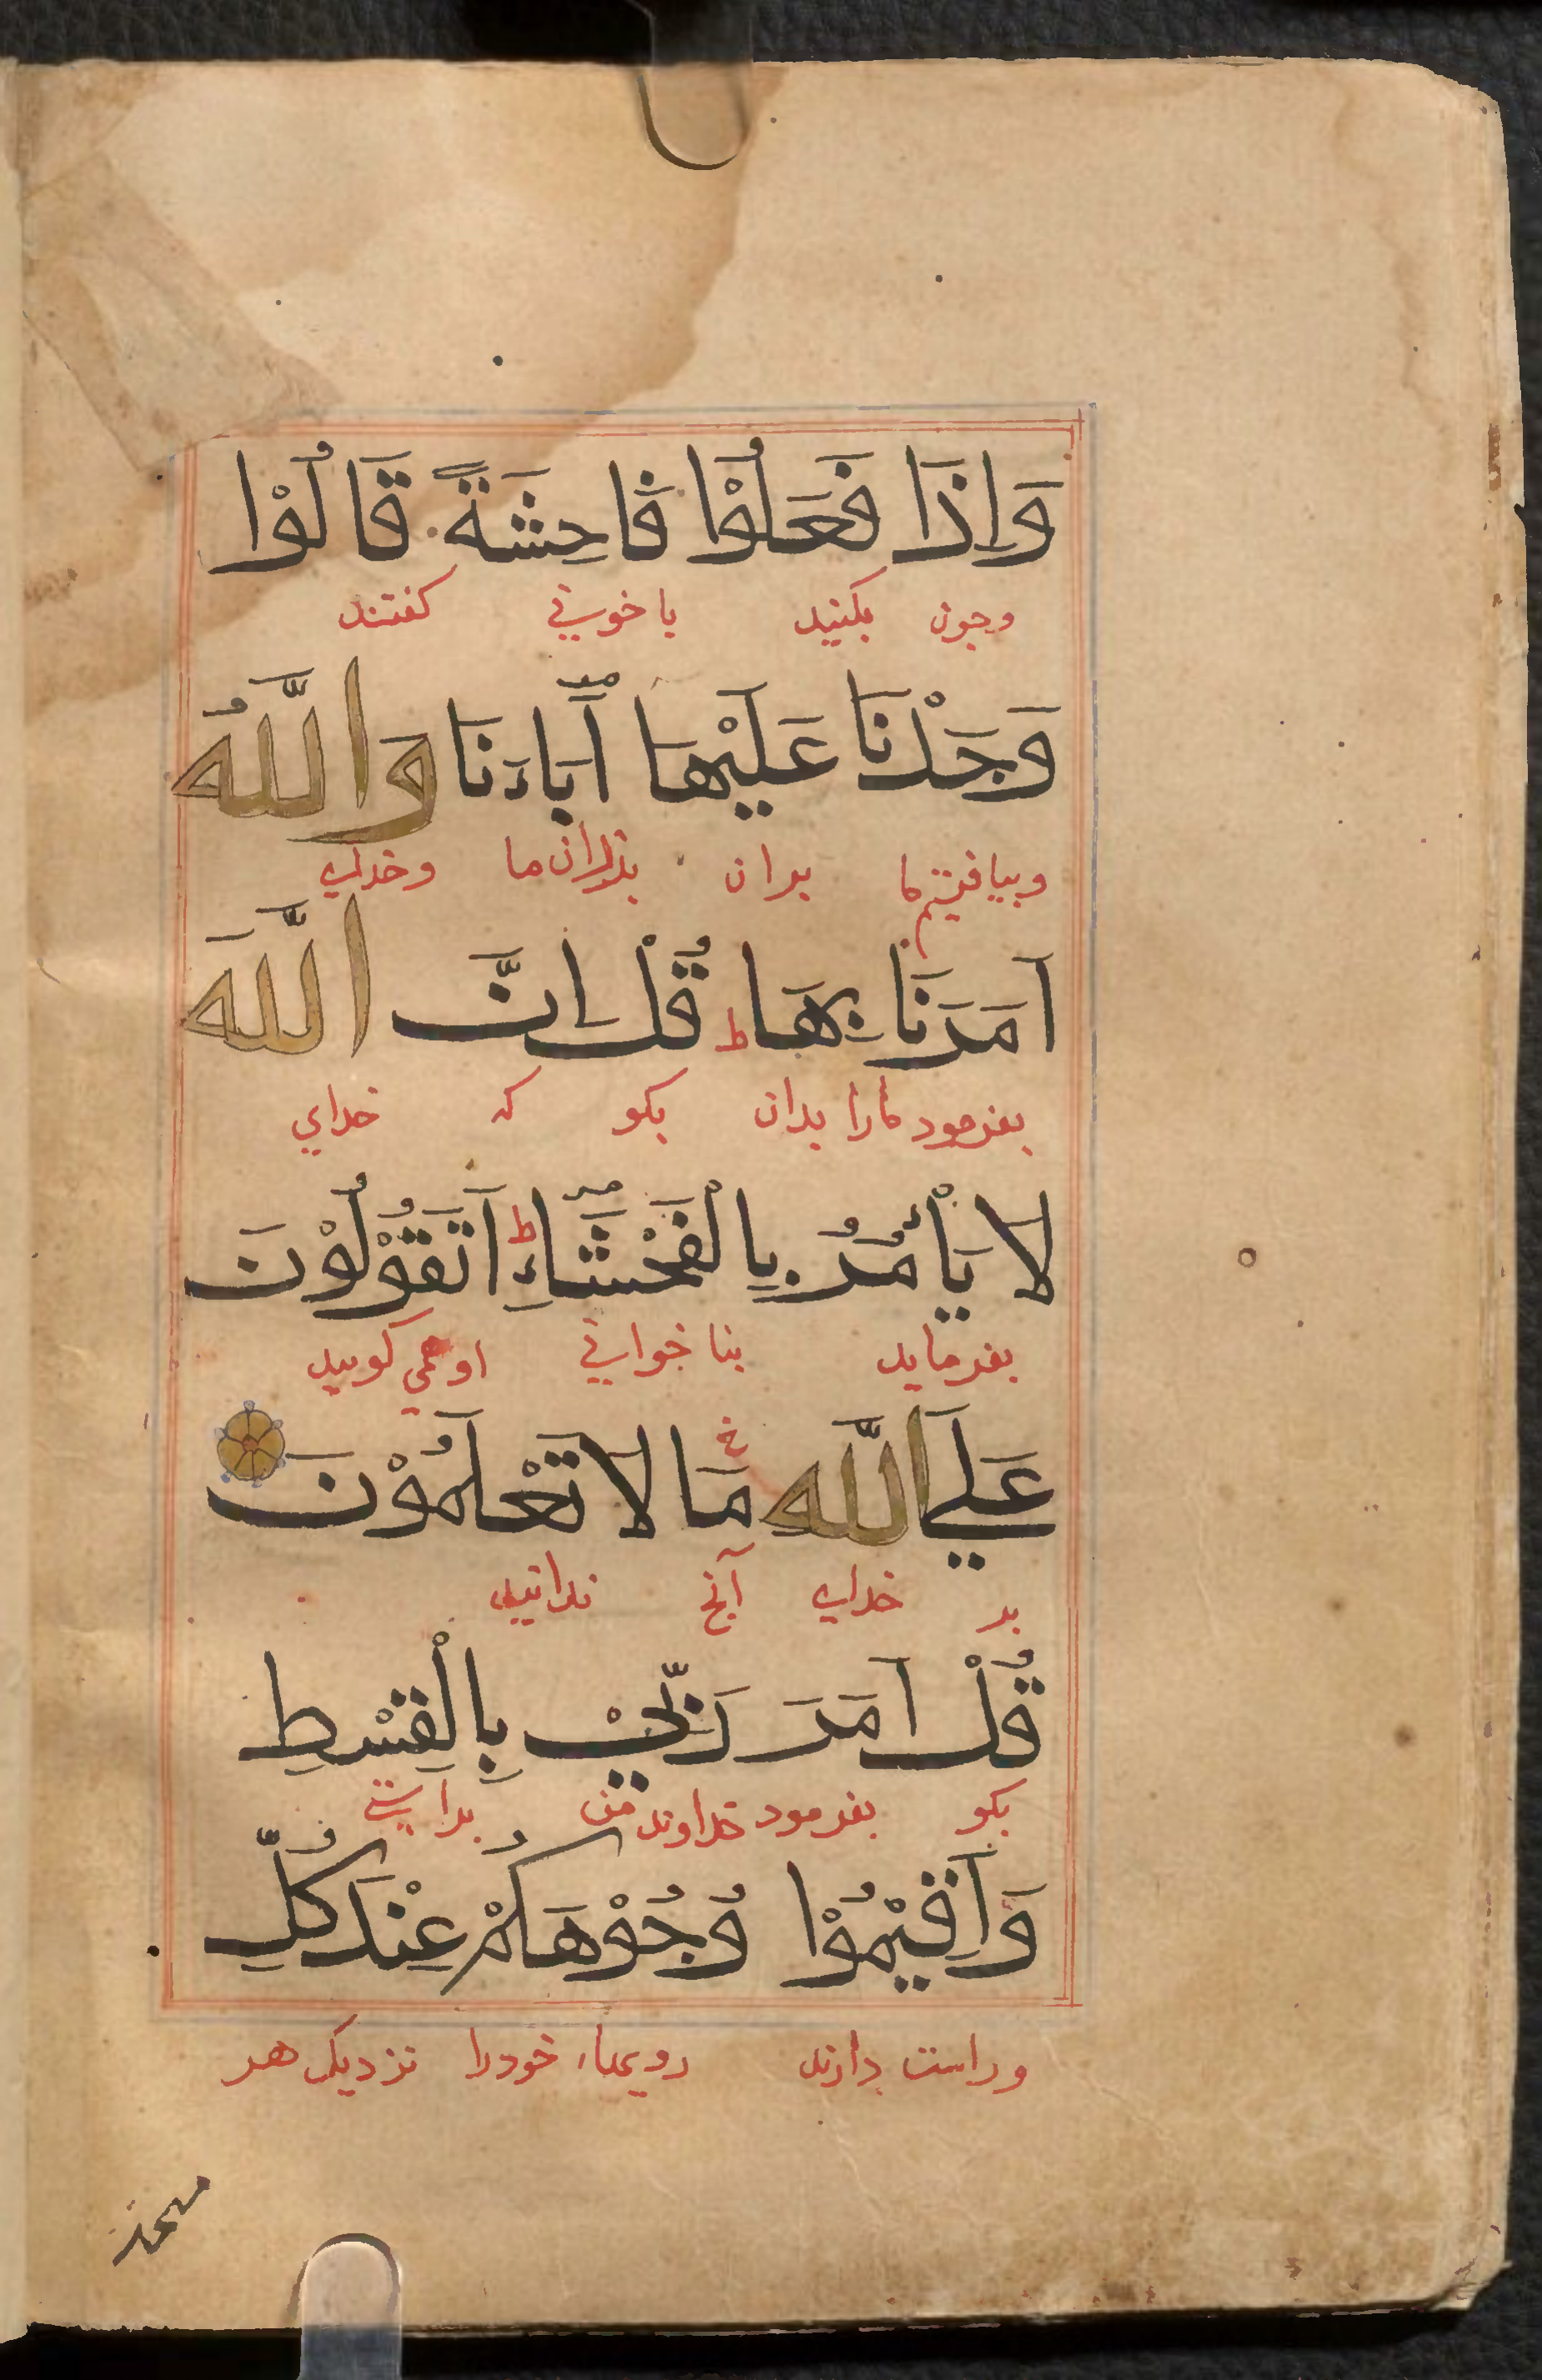 وَاِذَا فَعَلُوْا فَاحِشَةً قَالُوْا
وجون بكنيد ياخوشي كفتند
وَجَدْنَا عَلَيْهَا اٰبَاءَنَا وَاللّٰهُ
وبيافتيم ما بران پدران ما وخداى
اَمَرَنَا بِهَا ط قُلْ اِنَّ اللّٰهَ
بفرمود مارا بدان بكو كه خداي
لَا يَأْمُرُ بِالْفَحْشَاءِ ط اَتَقُوْلُوْنَ
بفرمايد بنا خوابي او همي كوييد
عَلَي اللّٰهِ مَا لَا تَعْلَمُوْنَ
بر خداى آنچ ندانيد
قُلْ اَمَرَ رَبِّيْ بِالْقِسْطِ
بكو بفرمود خداوند من براستي
وَاَقِيْمُوْا وُجُوْهَكُمْ عِنْدَ كُلِّ
وراست دارند رويهاء خودرا نزديك هر